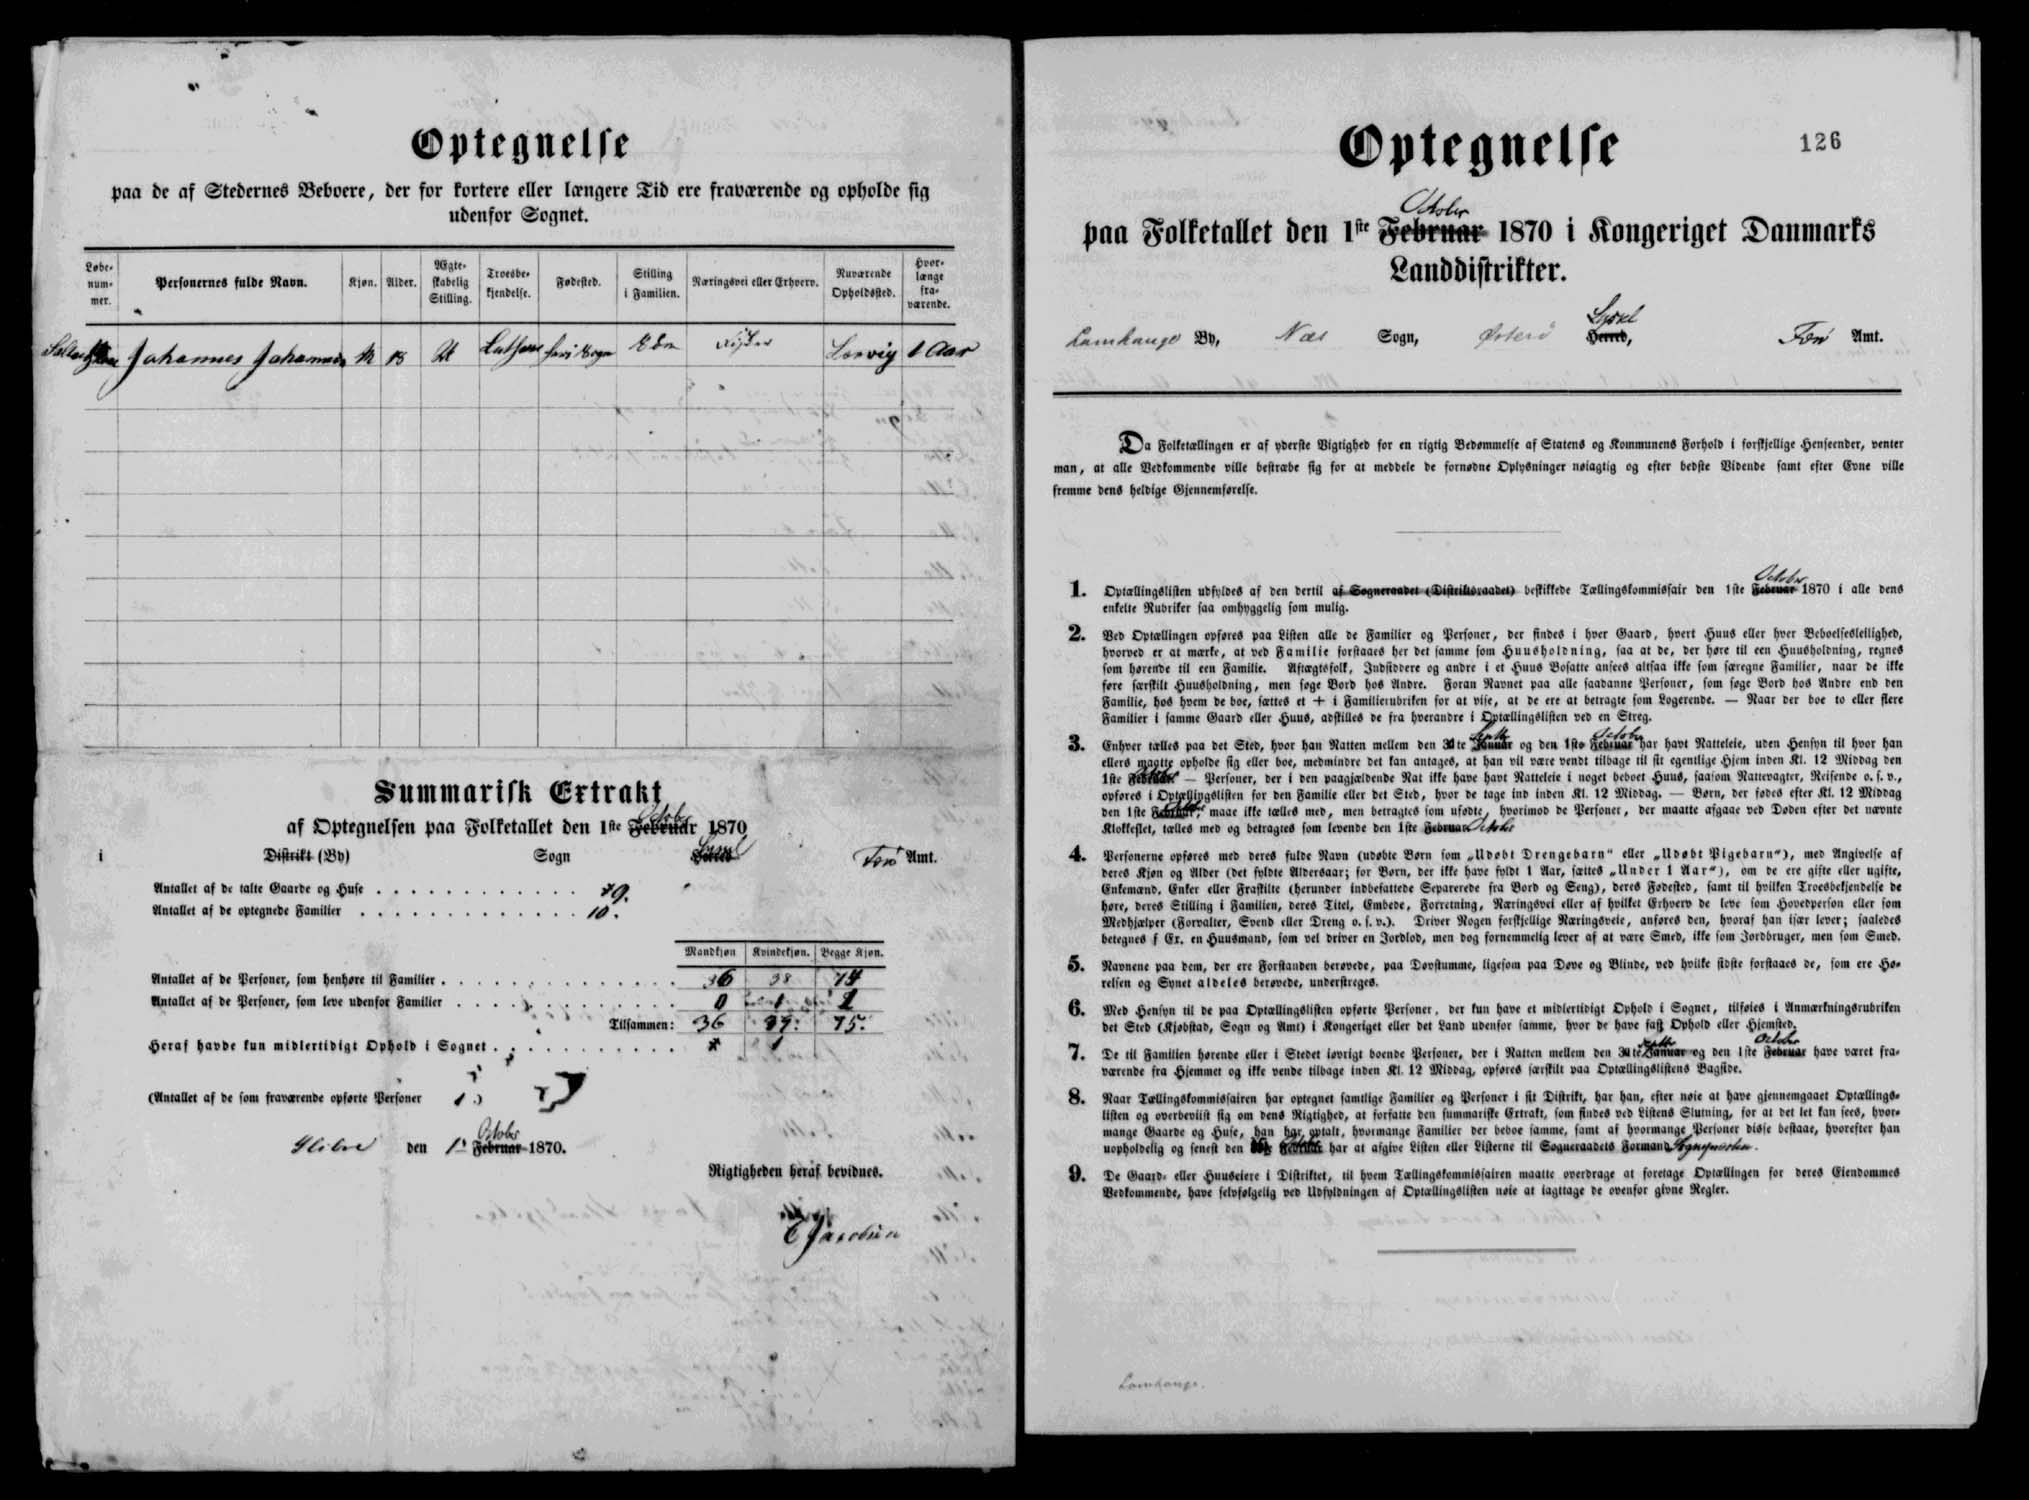 Optegnelse
paa de af Stedernes Beboere, der for kortere eller længere Tid ere fraværende og opholde sig
udenfor Sognet.
Løbe-
num-
mer.
Personernes fulde Navn.
Kjøn.
Alder.
Ægte-
skabelig
Stilling.
Troesbe-
kjendelse.
Fødested.
Stilling
i Familien.
Næringsvei eller Erhverv.
Nuværende
Opholdssted.
Hvor-
længe
fra-
værende.
Johannes Johannesen M 18 U Luthersk Sogn Søn Fisker Lorvig 1 Aar
Summarisk Extrakt
October
af Optegnelsen paa Folketallet den 1ste Februar 1870
Syssel
i Distrikt (By) Sogn Herred Færö Amt.
Antallet af de talte Gaarde og Huse 9.
Antallet af de optegnede Familier 10.
Mandkjøn Kvindekjøn. Begge Kjøn.
Antallet af de Personer, som henhøre til Familier 36 38 74
Antallet af de Personer, som leve udenfor Familier 0 1 1
Tilsammen: 36 39. 75.
Heraf havde kun midlertidigt Ophold i Sognet 1
(Antallet af de som fraværende opførte Personer 1.)
October
den 1ste Februar 1870.
Rigtigheden heraf bevidnes.
Jacobsen
126
Optegnelse
October
paa Folketallet den 1ste Februar 1870 i Kongeriget Danmarks
Landdistrikter.
Syssel
Lamhauge By, Næs Sogn, Østerö Herred, Færö Amt.
Da Folketællingen er af yderste Vigtighed for en rigtig Bedømmelse af Statens og Kommunens Forhold i forskjellige Henseender, venter
man, at alle Vedkommende ville bestræbe sig for at meddele de fornødne Oplysninger nøiagtig og efter bedste Vidende samt efter Evne ville
fremme dens heldige Gjennemførelse.
October
1. Optællingslisten udfyldes af den dertil af Sogneraadet (Distriktsraadet) beskikkede Tællingskommissair den 1ste Februar 1870 i alle dens
enkelte Rubriker saa omhyggelig som mulig.
2. Ved Optællingen opføres paa Listen alle de Familier og Personer, der findes i hver Gaard, hvert Huus eller hver Beboelsesleilighed,
hvorved er at mærke, at ved Familie forstaaes her det samme som Huusholdning, saa at de, der høre til een Huusholdning, regnes
som hørende til een Familie. Aftægtsfolk, Indsiddere og andre i et Huus Bosatte ansees altsaa ikke som særegne Familier, naar de ikke
føre særskilt Huusholdning, men søge Bord hos Andre. Foran Navnet paa alle saadanne Personer, som søge Bord hos Andre end den
Familie, hos hvem de boe, sættes et + i Familierubriken for at vise, at de ere at betragte som Logerende. — Naar der boe to eller flere
Familier i samme Gaard eller Huus, adskilles de fra hverandre i Optællingslisten ved en Streg.
Septbr October
3. Enhver tælles paa det Sted, hvor han Natten mellem den 30te Januar og den 1ste Februar har havt Natteleie, uden Hensyn til hvor han
ellers maatte opholde sig eller boe, medmindre det kan antages, at han vil være vendt tilbage til sit egentlige Hjem inden Kl. 12 Middag den
1ste Februar — Personer, der i den paagjældende Nat ikke have havt Natteleie i noget beboet Huus, saasom Nattevagter, Reisende o. s. v.,
opføres i Optællingslisten for den Familie eller det Sted, hvor de tage ind inden Kl. 12 Middag. — Børn, der fødes efter Kl. 12 Middag
den 1ste Februar, maae ikke tælles med, men betragtes som ufødte, hvorimod de Personer, der maatte afgaae ved Døden efter det nævnte
Klokkeslet, tælles med og betragtes som levende den 1ste Februar October
4. Personerne opføres med deres fulde Navn (udøbte Børn som „Udøbt Drengebarn“ eller „Udøbt Pigebarn“), med Angivelse af
deres Kjøn og Alder (det fyldte Aldersaar; for Børn, der ikke have fyldt 1 Aar, sættes „Under 1 Aar“), om de ere gifte eller ugifte,
Enkemænd, Enker eller Fraskilte (herunder indbefattede Separerede fra Bord og Seng), deres Fødested, samt til hvilken Troesbekjendelse de
høre, deres Stilling i Familien, deres Titel, Embede, Forretning, Næringsvei eller af hvilket Erhverv de leve som Hovedperson eller som
Medhjælper (Forvalter, Svend eller Dreng o. s. v.). Driver Nogen forskjellige Næringsveie, anføres den, hvoraf han især lever; saaledes
betegnes f Ex. en Huusmand, som vel driver en Jordlod, men dog fornemmelig lever af at være Smed, ikke som Jordbruger, men som Smed.
5. Navnene paa dem, der ere Forstanden berøvede, paa Døvstumme, ligesom paa Døve og Blinde, ved hvilke sidste forstaaes de, som ere Hø-
relsen og Synet aldeles berøvede, understreges.
6. Med Hensyn til de paa Optællingslisten opførte Personer, der kun have et midlertidigt Ophold i Sognet, tilføies i Anmærkningsrubriken
det Sted (Kjøbstad, Sogn og Amt) i Kongeriget eller det Land udenfor samme, hvor de have fast Ophold eller Hjemsted.
Septbr October
7. De til Familien hørende eller i Stedet iøvrigt boende Personer, der i Natten mellem den 30te Januar og den 1ste Februar have været fra-
værende fra Hjemmet og ikke vende tilbage inden Kl. 12 Middag, opføres særskilt paa Optællingslistens Bagside.
8. Naar Tællingskommissairen har optegnet samtlige Familier og Personer i sit Distrikt, har han, efter nøie at have gjennemgaaet Optællings-
listen og overbeviist sig om dens Rigtighed, at forfatte den summariske Extrakt, som findes ved Listens Slutning, for at det let kan sees, hvor-
mange Gaarde og Huse, han har optalt, hvormange Familier der beboe samme, samt af hvormange Personer disse bestaae, hvorefter han
uopholdelig og senest den Februar har at afgive Listen eller Listerne til Sogneraadets Formand Sognepræsten.
9. De Gaard- eller Huuseiere i Distriktet, til hvem Tællingskommissairen maatte overdrage at foretage Optællingen for deres Eiendommes
Vedkommende, have selvfølgelig ved Udfyldningen af Optællingslisten nøie at iagttage de ovenfor givne Regler.
Lamhauge.